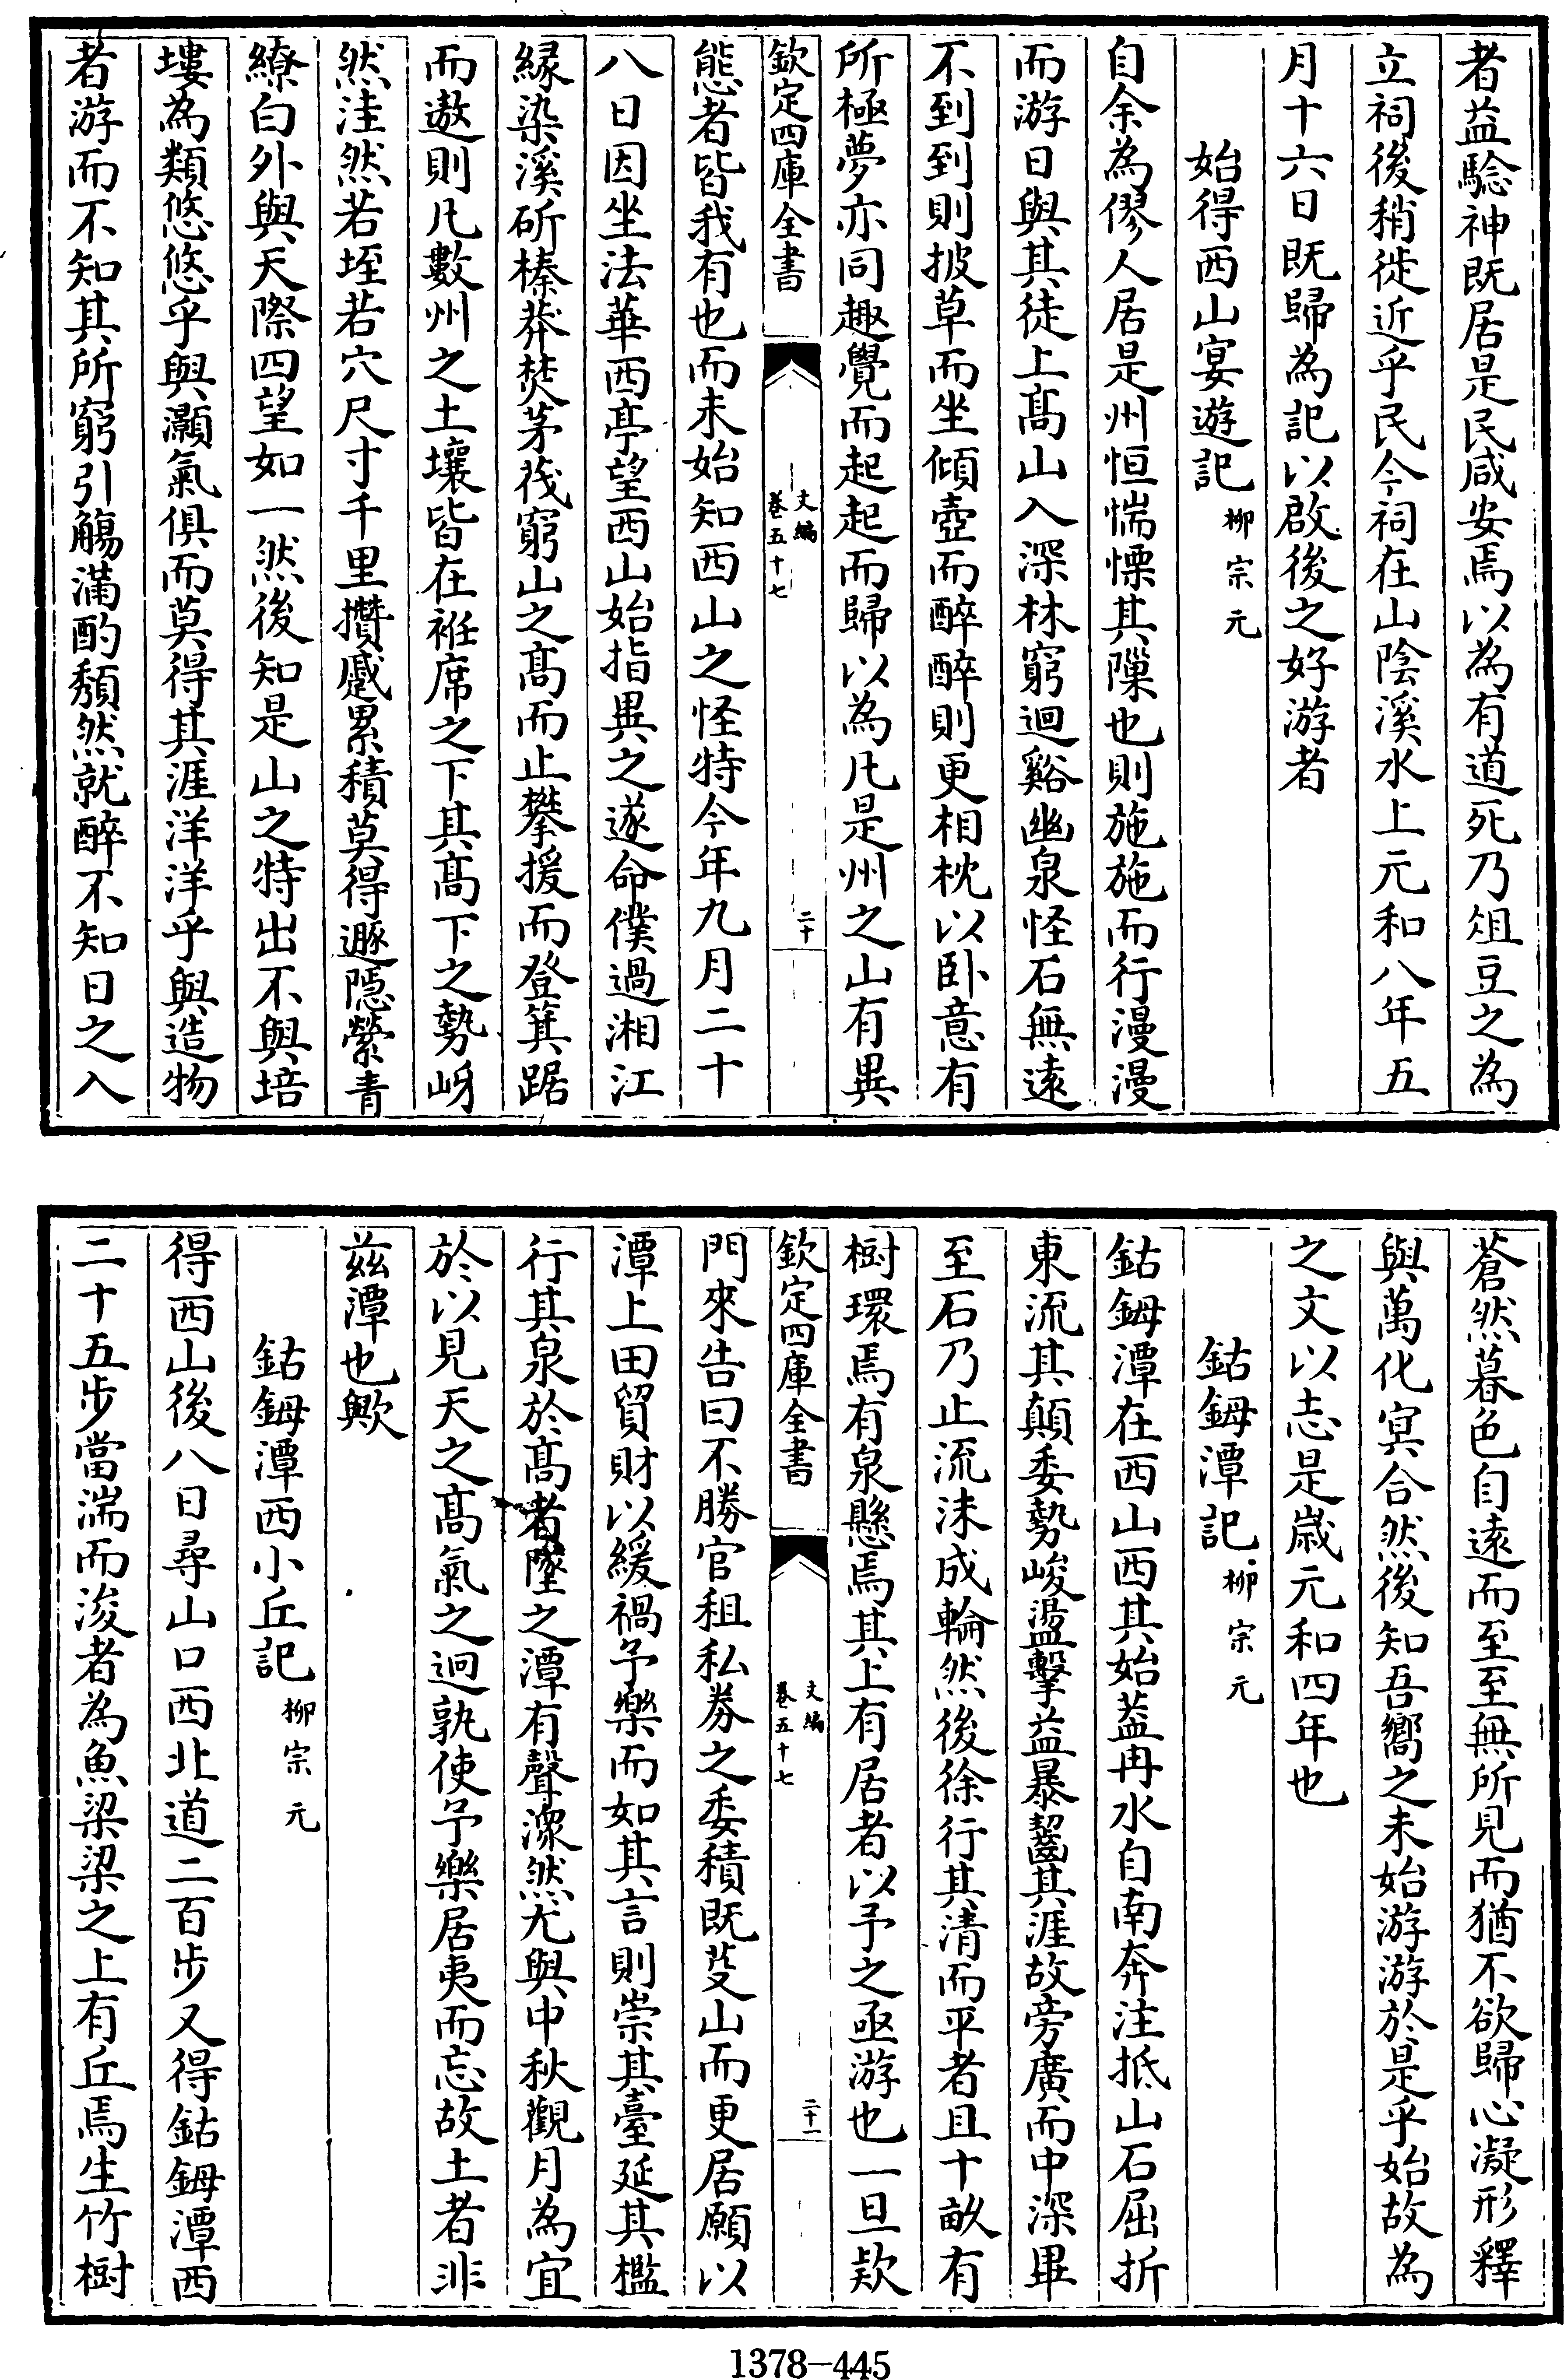 者益騐神既居是民咸安焉以為有道死乃俎豆之為
立祠後稍徙近乎民今祠在山陰溪水上元和八年五
月十六日既歸為記以啟後之好游者
始得西山宴遊記 柳宗元
自余為僇人居是州恒惴慄其隟也則施施而行漫漫
而游日與其徒上髙山入深林窮迴谿幽泉怪石無逺
不到到則披草而坐傾壺而醉醉則更相枕以卧意有
所極夢亦同趣覺而起起而歸以為凡是州之山有異
欽定四庫全書
文編
卷五十七
二十
態者皆我有也而未始知西山之怪特今年九月二十
八日因坐法華西亭望西山始指異之遂命僕過湘江
縁染溪斫榛莽焚茅茷窮山之髙而止攀援而登箕踞
而遨則凡數州之土壤皆在袵席之下其髙下之勢岈
然洼然若垤若穴尺寸千里攢蹙累積莫得遯隠縈青
繚白外與天際四望如一然後知是山之特出不與培
塿為類悠悠乎與灝氣俱而莫得其涯洋洋乎與造物
者游而不知其所窮引觴滿酌頽然就醉不知日之入
蒼然暮色自逺而至至無所見而猶不欲歸心凝形釋
與萬化冥合然後知吾嚮之未始游游於是乎始故為
之文以志是嵗元和四年也
鈷鉧潭記 柳宗元
鈷鉧潭在西山西其始葢冉水自南奔注抵山石屈折
東流其顛委勢峻盪擊益暴齧其涯故旁廣而中深畢
至石乃止流沫成輪然後徐行其清而平者且十畝有
樹環焉有泉懸焉其上有居者以予之亟游也一旦欵
欽定四庫全書
文編
卷五十七
二十一
門來告曰不勝官租私劵之委積既芟山而更居願以
潭上田貿財以緩禍予樂而如其言則崇其臺延其檻
行其泉於髙者墜之潭有聲潨然尤與中秋觀月為宜
於以見天之髙氣之迥孰使予樂居夷而忘故土者非
茲潭也歟
鈷鉧潭西小丘記 柳宗元
得西山後八日尋山口西北道二百步又得鈷鉧潭西
二十五步當湍而浚者為魚梁梁之上有丘焉生竹樹
1378-445